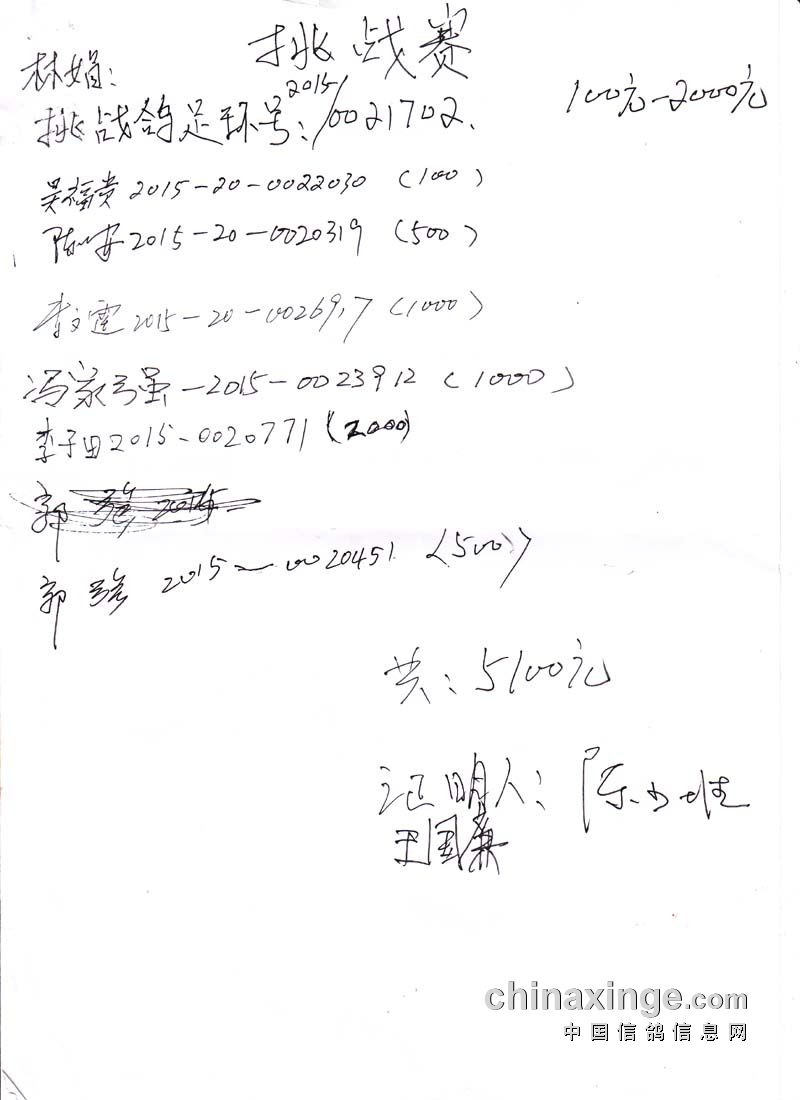 挑战赛
林娟:
100元-2000元
挑战鸽足环号:2015/0021702.
吴福贵 2015-20-0022030 (100)
陈 安 2015-20-0020319 (500)
李文霆 2015-20-0026917 (1000)
冯家强-2015-0023912 (1000)
李子田2015-0020771 (2000)
郭 强 2015
郭 强 2015-0020451 (500)
共: 5100元
证明人: 陈
王国
chinaxinge.com
中国信鸽信息网